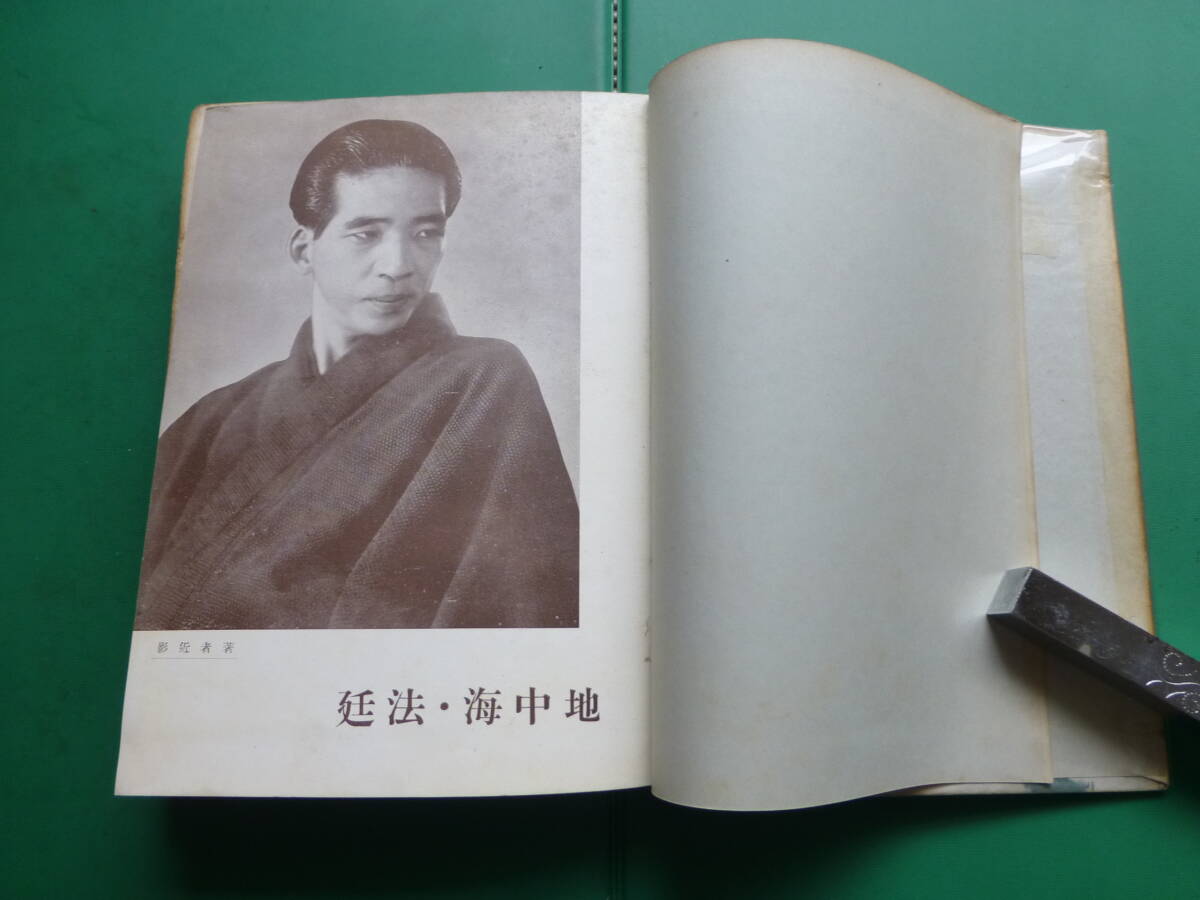 著者近影
地中海・法廷